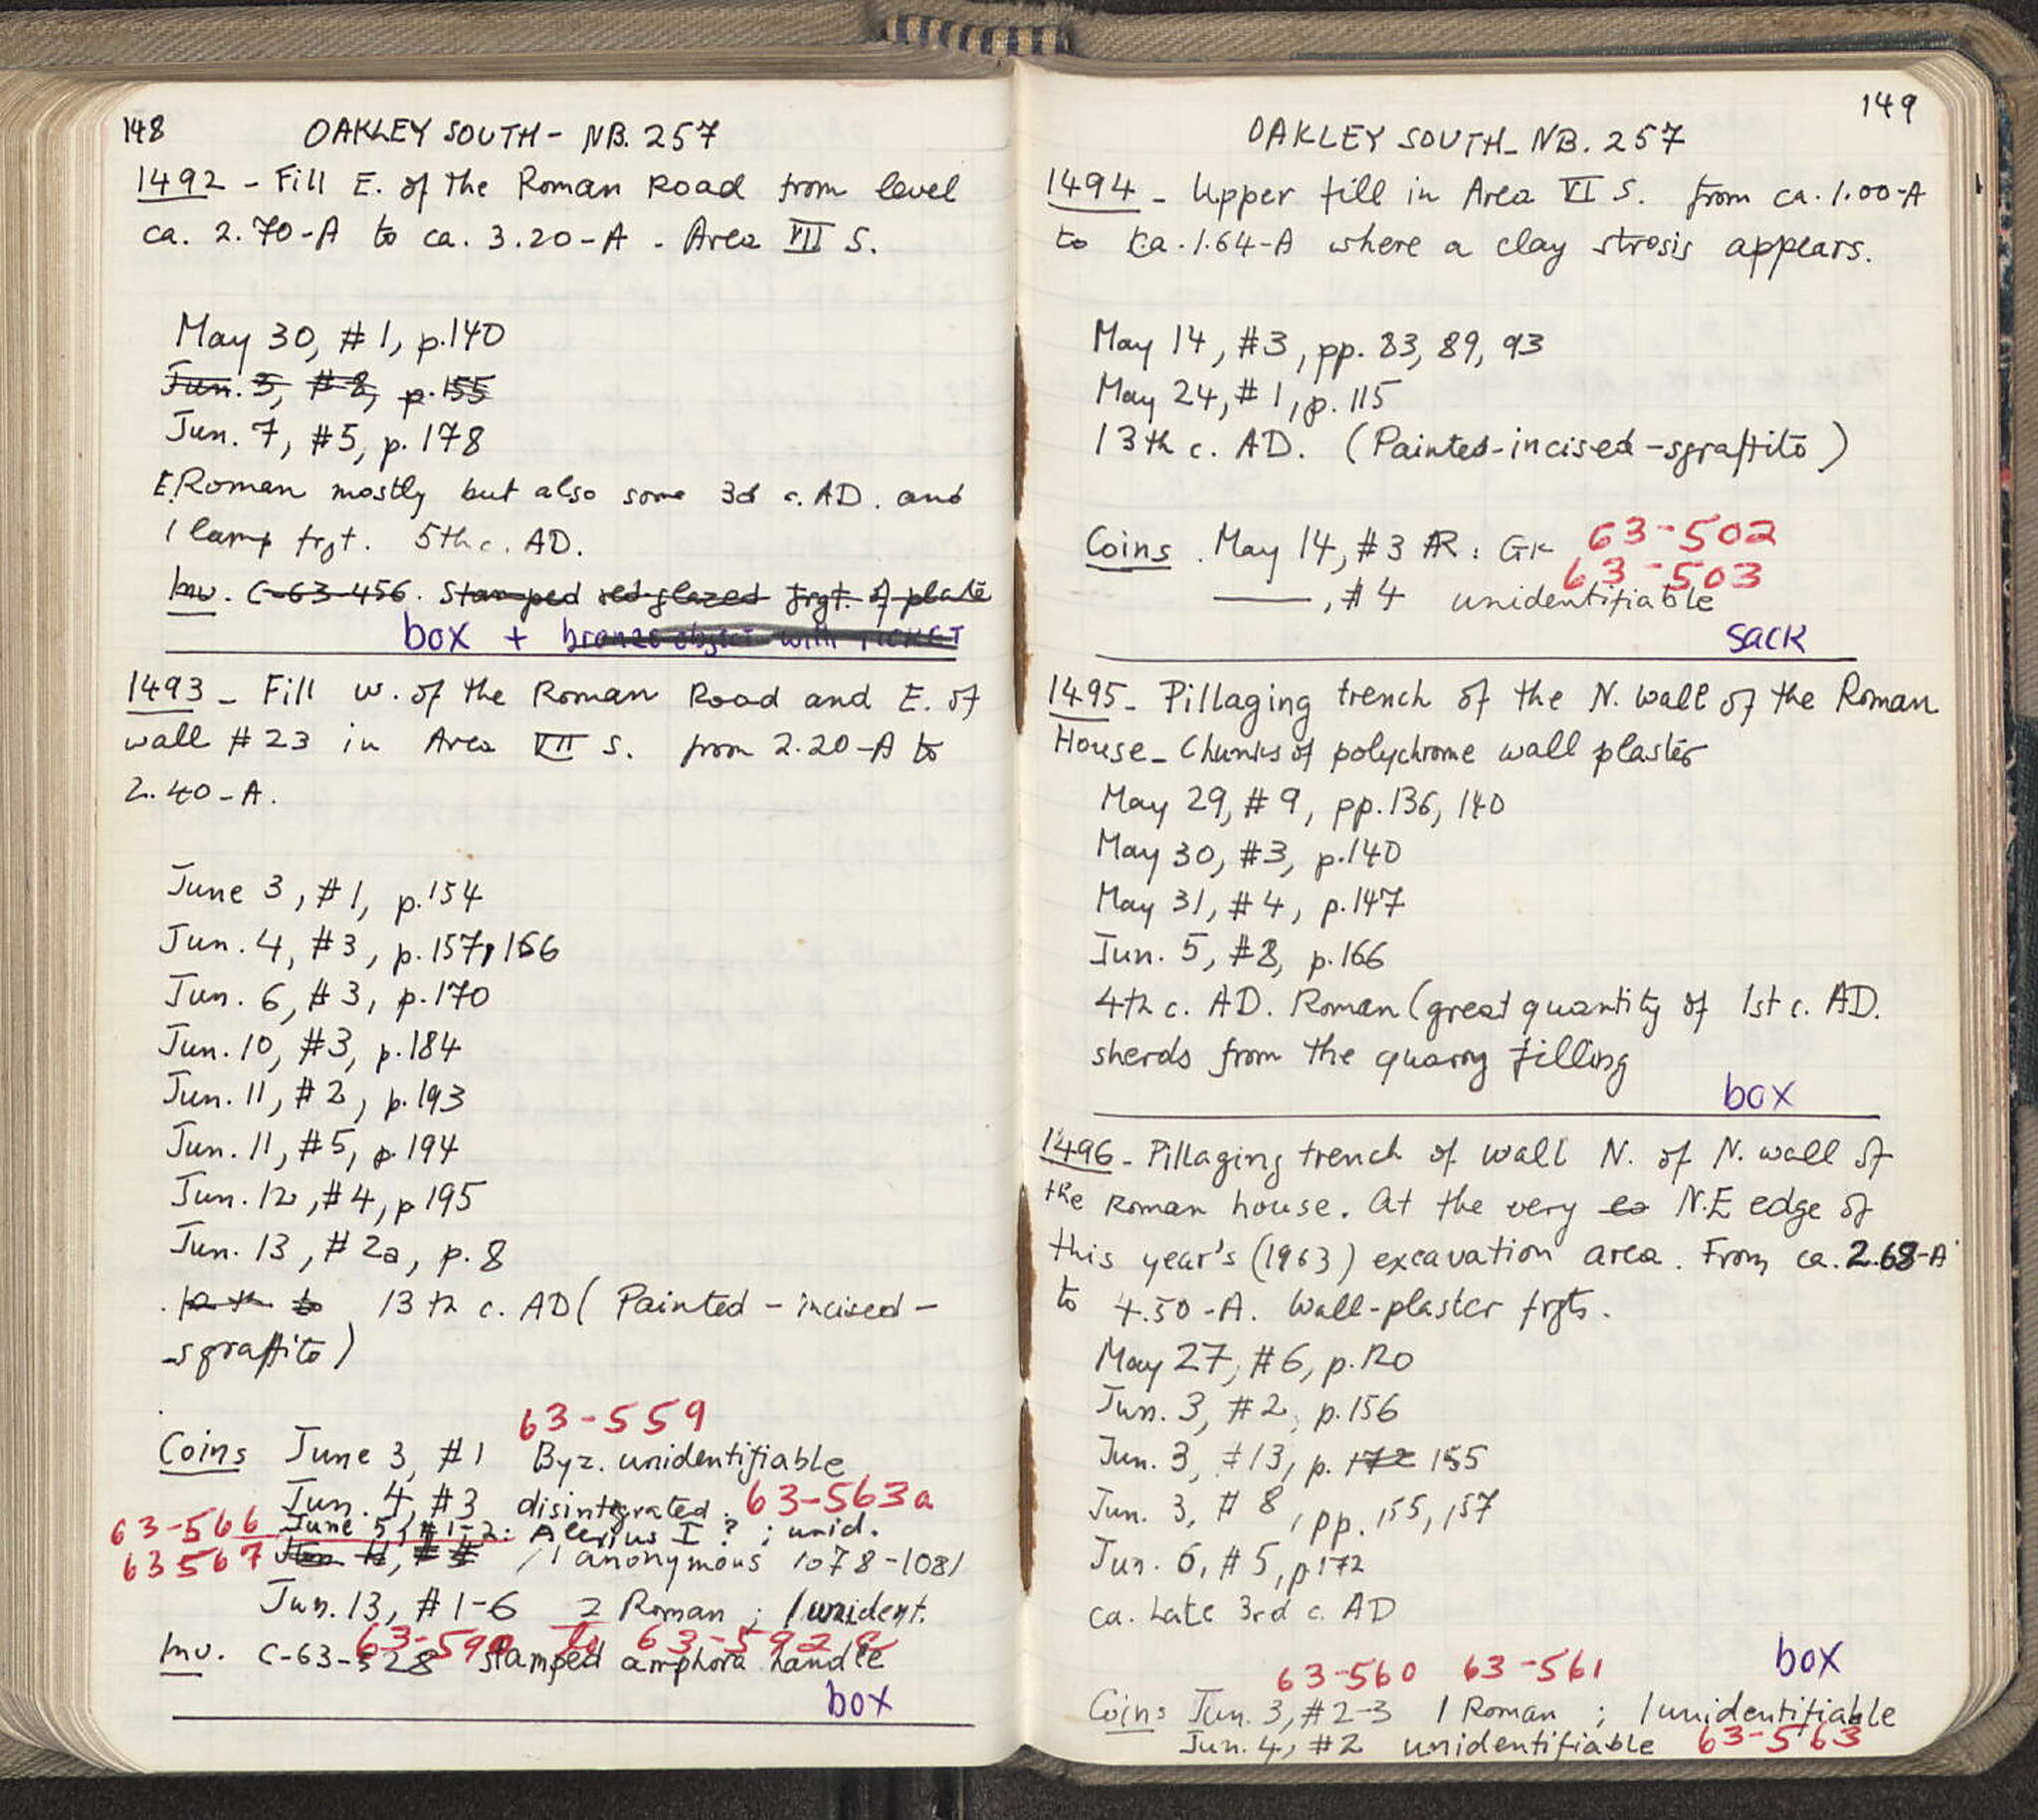 148
OAKLEY SOUTH - NB. 257
1492 - Fill E. of the Roman Road from level
ca. 2.70-A to ca. 3.20-A - Area VII S.
May 30, #1, p.140
Jun. 3, #8, p.155
Jun. 7, #5, p. 178
E.Roman mostly but also some 3d c. AD. and
1 lamp frgt. 5th c. AD.
Inv. C-63-456. Stamped red glazed frgt. of plate
box + bronze object with TICKET
1493 - Fill W. of the Roman Road and E. of
wall #23 in Area VII S. from 2.20-A to
2.40-A.
June 3, #1, p.154
Jun. 4, #3, p.157, 166
Jun. 6, #3, p.170
Jun. 10, #3, p.184
Jun. 11, #2, p.193
Jun. 11, #5, p 194
Jun. 12, #4, p 195
Jun. 13, #2a, p. 8
13th c. AD (Painted - incised -
-sgraffito)
63-559
Coins June 3, #1 Byz. unidentifiable
Jun. 4, #3 disintegrated. 63-563a
63-566 June 5, #1-2: Alexius I ? ; unid.
63567 / 1 anonymous 1078-1081
Jun. 13, #1-6 2 Roman ; 1 unident.
63-590 to 63-592
Inv. C-63-328 stamped amphora handle
box
149
OAKLEY SOUTH - NB. 257
1494 - Upper fill in Area VI S. from ca. 1.00-A
to ca. 1.64-A where a clay strosis appears.
May 14, #3, pp. 83, 89, 93
May 24, #1, p. 115
13th c. AD. (Painted-incised-sgraffito)
Coins. May 14, #3 AR : Gk 63-502
63-503
——, #4 unidentifiable
sack
1495 - Pillaging trench of the N. wall of the Roman
House - Chunks of polychrome wall plaster
May 29, #9, pp.136, 140
May 30, #3, p.140
May 31, #4, p.147
Jun. 5, #8, p.166
4th c. AD. Roman (great quantity of 1st c. AD.
sherds from the quarry filling
box
1496 - Pillaging trench of wall N. of N. wall of
the Roman house. At the very ea N.E edge of
this year's (1963) excavation area. From ca. 2.68-A
to 4.50-A. Wall-plaster frgts.
May 27, #6, p.120
Jun. 3, #2, p.156
Jun. 3, #13, p. 172 155
Jun. 3, #8, pp. 155, 157
Jun. 6, #5, p172
ca. Late 3rd c. AD
box
63-560 63-561
Coins Jun. 3, #2-3 1 Roman ; 1 unidentifiable
Jun. 4, #2 unidentifiable 63-563